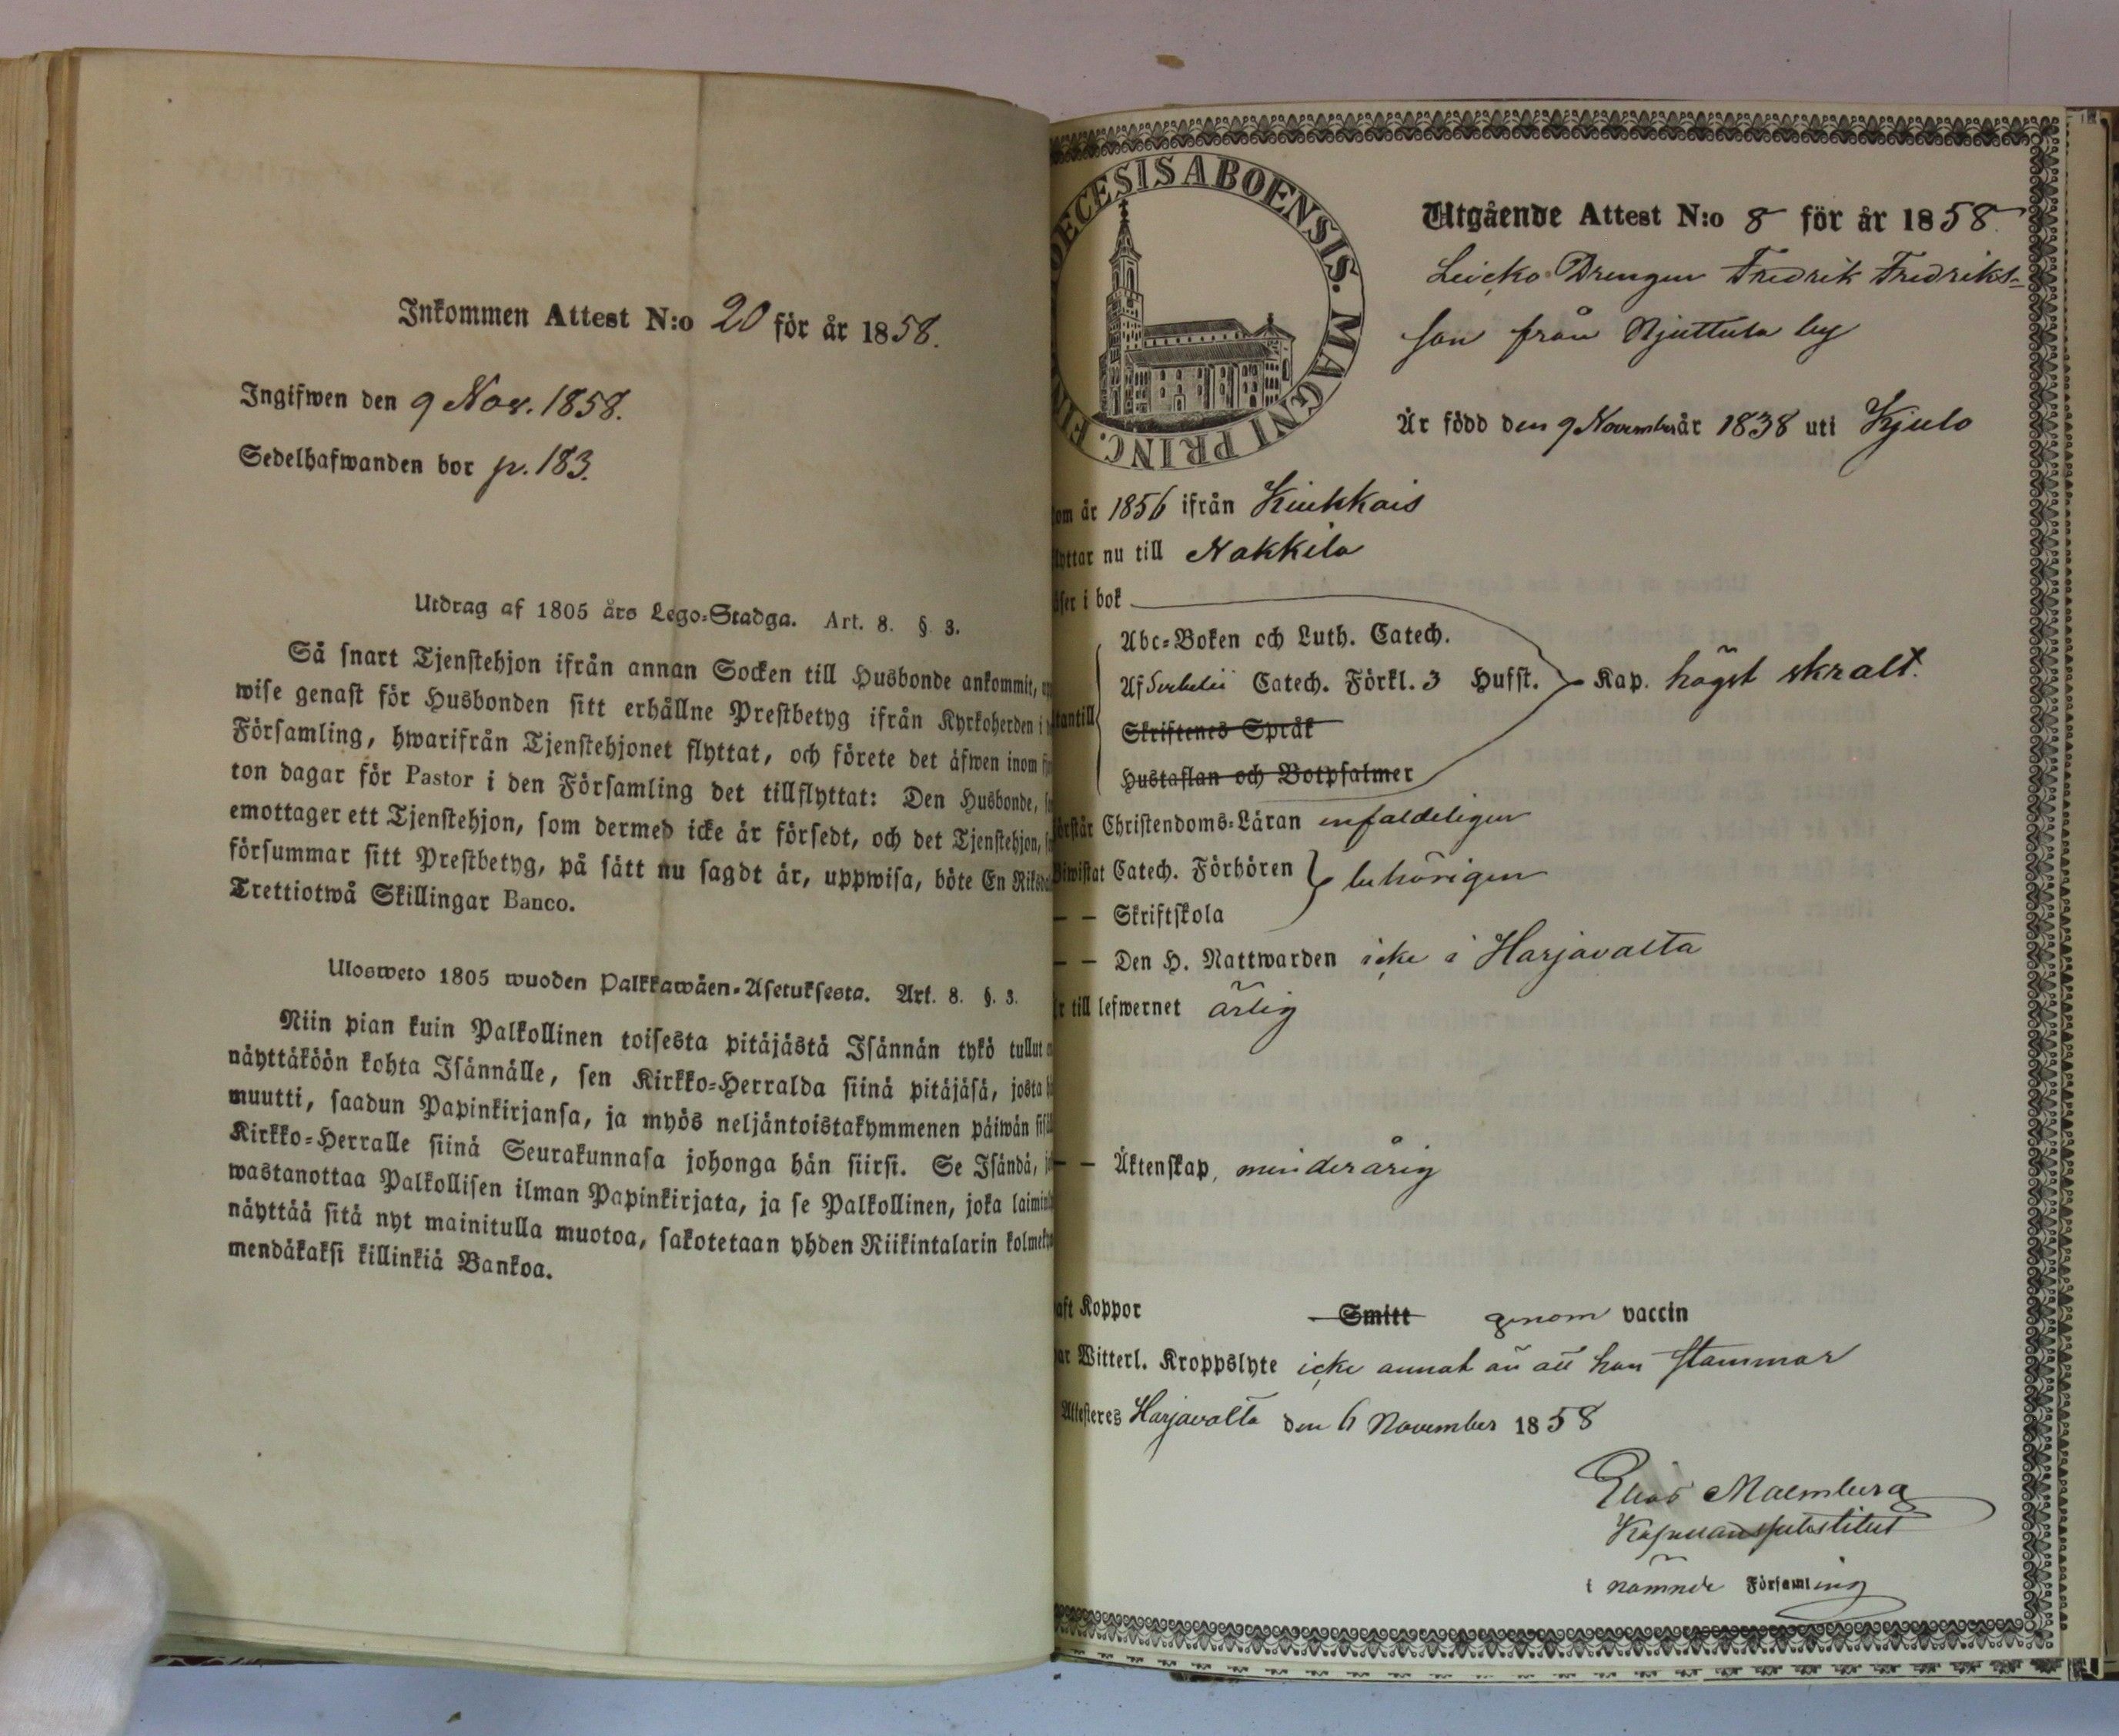 Inkommen Attest N:o 20 för år 1858.
Ingifwen den 9 Nov. 1858.
Sedelhafwanden bor p. 183.
Utdrag af 1805 års Lego-Stadga. Art. 8. §. 3.
Så snart Tjenstehjon ifrån annan Socken till Husbonde ankommit,
wise genast för Husbonden sitt erhållne Prestbetyg ifrån Kyrkoherden i
Församling, hwarifrån Tjenstehjonet flyttat, och förete det äfwen inom
ton dagar för Pastor i den Församling det tillflyttat: Den Husbonde,
emottager ett Tjenstehjon, som dermed icke är försedt, och det Tjenstehjon,
försummar sitt Prestbetyg, på sätt nu sagdt är, uppwisa, böte En Riksd
Trettiotwå Skillingar Banco.
Ulosweto 1805 wuoden Palkkawäen-Asetuksesta. Art. 8. §. 3.
Niin pian kuin Palkollinen toisesta pitäjästä Isännän tykö tullut
näyttäköön kohta Isännälle, sen Kirkko-Herralda siinä pitäjäsä, josta
muutti, saadun Papinkirjansa, ja myös neljäntoistakymmenen päiwän sisäll
Kirkko-Herralle siinä Seurakunnasa johonga hän siirsi. Se Isändä,
wastanottaa Palkollisen ilman Papinkirjata, ja se Palkollinen, joka laimin
näyttää sitä nyt mainitulla muotoa, sakotetaan yhden Riikintalarin kolmeky
mendäkaksi killinkiä Bankoa.
OECESIS ABOENSIS. MAGNI PRINC. FIN
Utgående Attest N:o 8 för år 1858.
Drengen Fredrik Fredriks-
son från Njuttula by
Är född den 9 November år 1838 uti Kjulo
om år 1856 ifrån Kiukkais
lyttar nu till Nakkila
äser i bok
Abc-Boken och Luth. Catech.
Af Svebelii Catech. Förkl. 3 Hufst. Kap. högst skralt.
tantill
Skriftenes Språk
Hustaflan och Botpsalmer
örstår Christendoms-Läran enfaldeligen
Biwistat Catech. Förhören behörigen
— — Skriftskola
— — Den H. Nattwarden icke i Harjavalta
r till lefwernet ärlig
— — Äktenskap, minderårig
aft Koppor Smitt genom vaccin
ar Witterl. Kroppslyte icke annat än att han stammar
Attesteres Harjavalta den 6 November 1858
Elias Malmberg
Kapellanssubstitut
i nämnde Församling